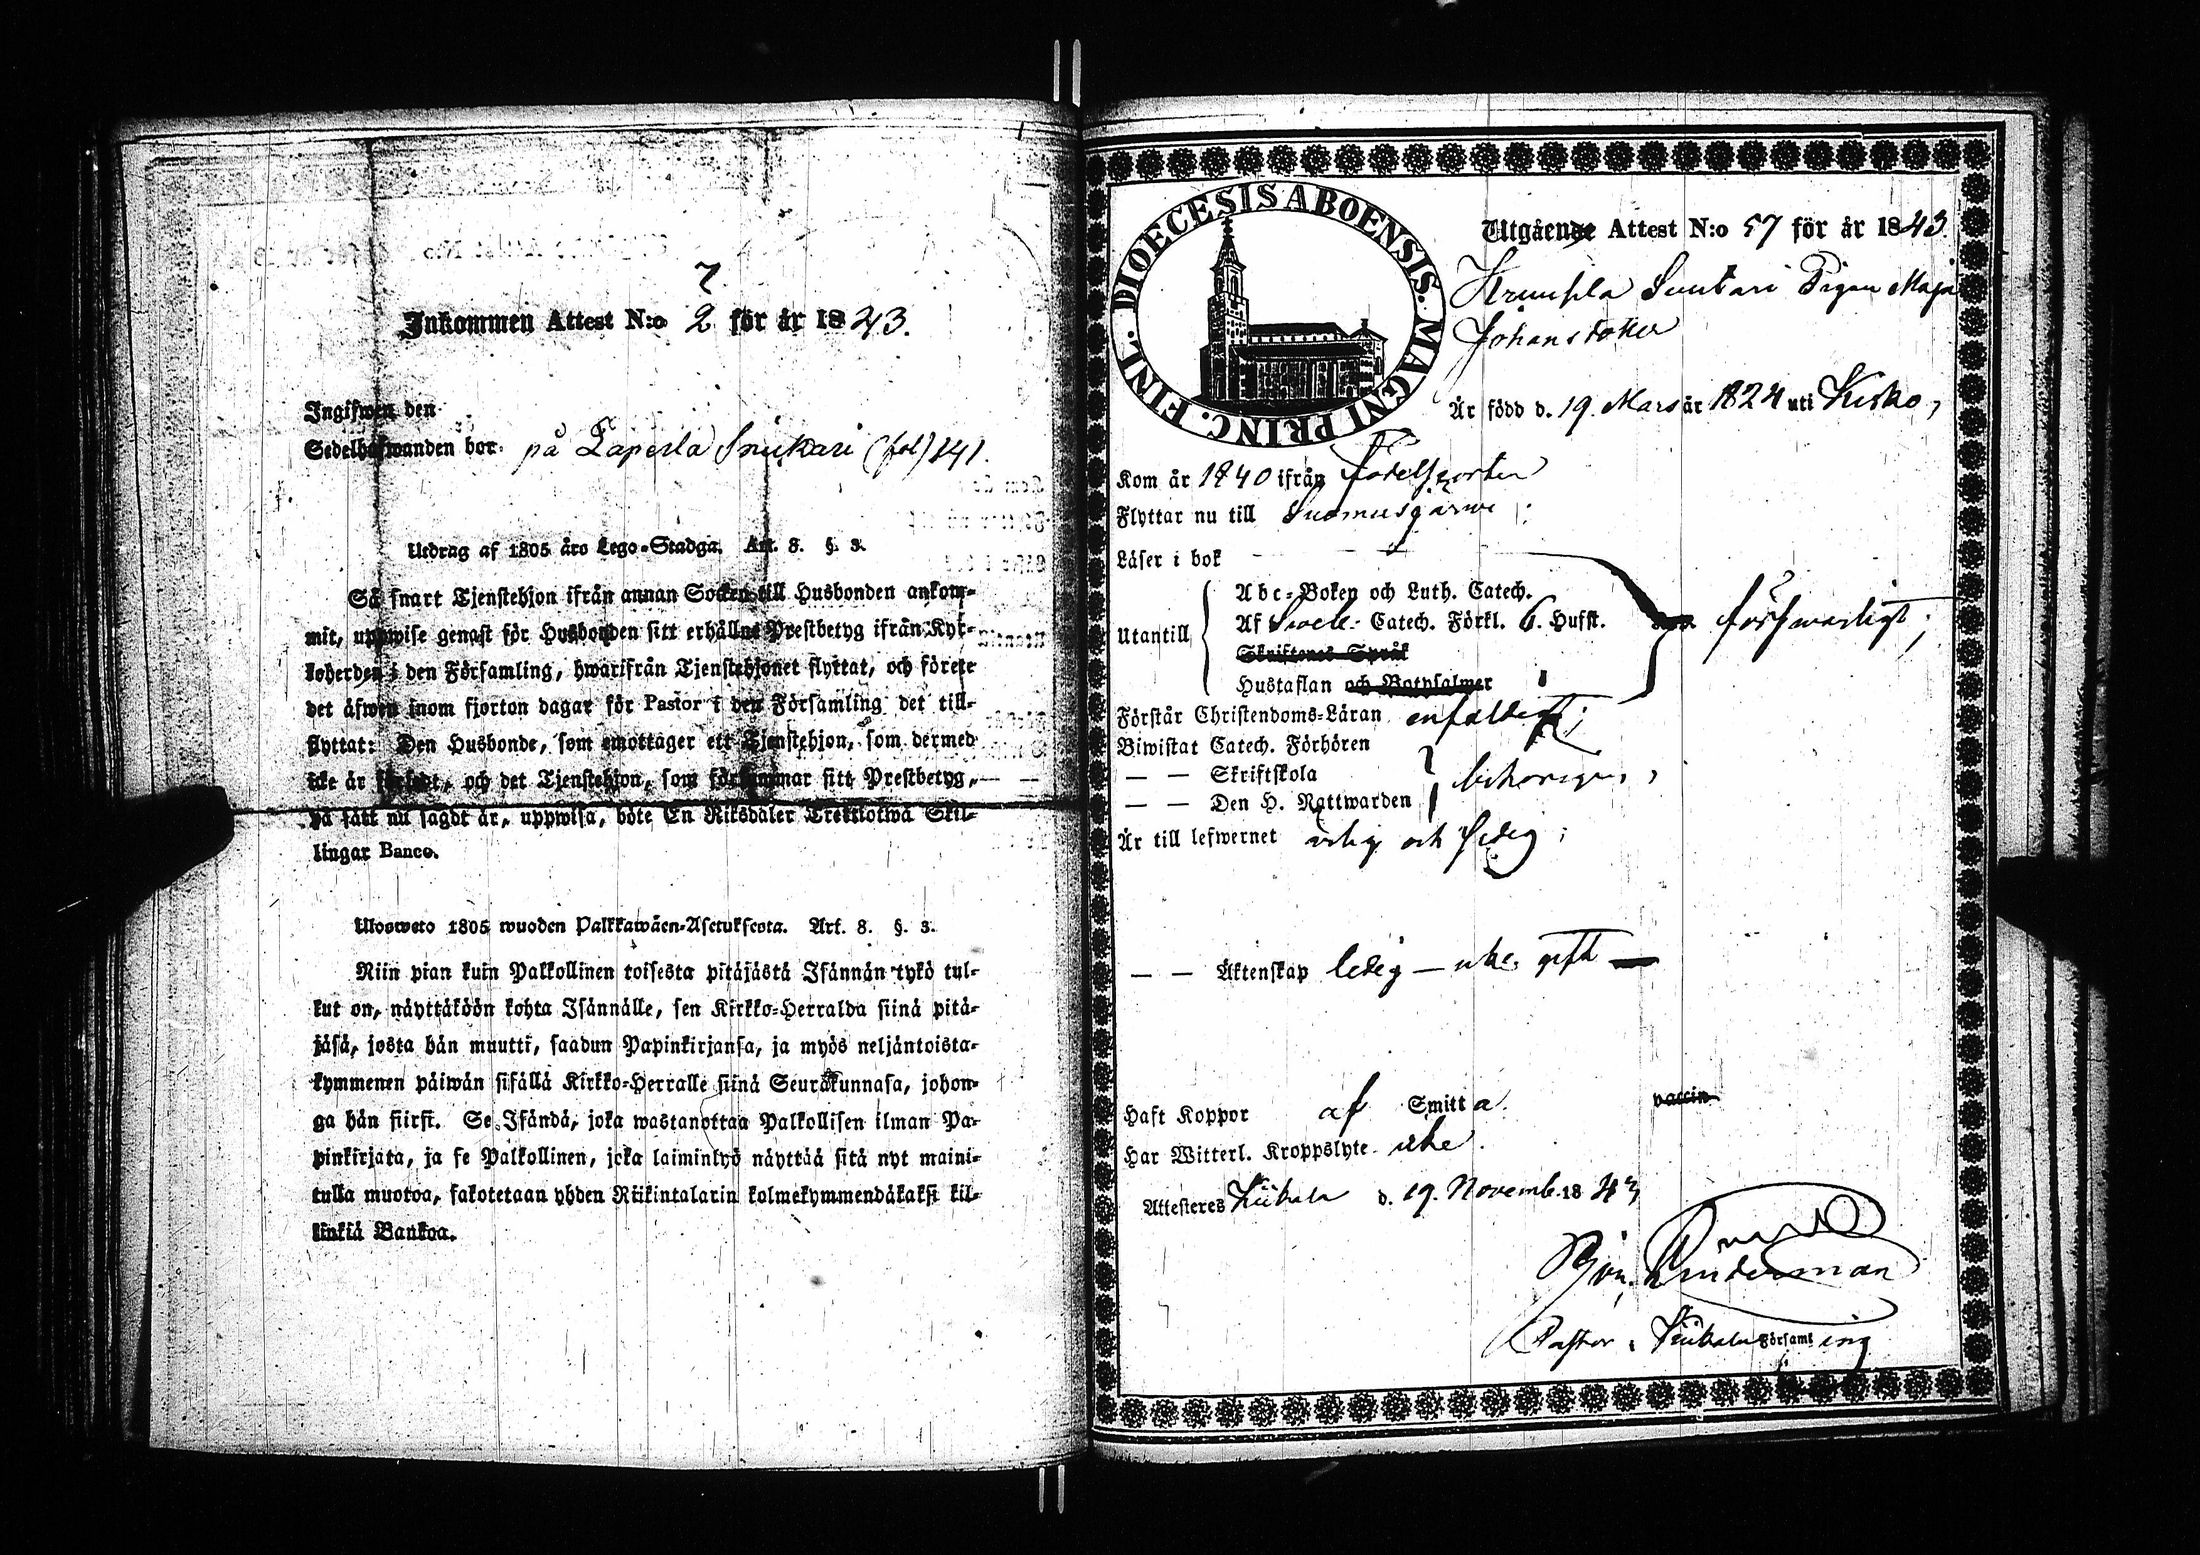 7.
Inkommen Attest N:o 2 för år 1843.
Ingifwen den
Sedelhafwanden bor på Laperla Snickari (fol) 141.
Utdrag af 1805 års Lego-Stadga. Art. 8. §. 3.
Så snart Tjenstehjon ifrån annan Socken till Husbonden ankom-
mit, uppwise genast för Husbonden sitt erhållne Prestbetyg ifrån Kyr-
koherden i den Församling, hwarifrån Tjenstehjonet flyttat, och förete
det äfwen inom fjorton dagar för Pastor i den Församling det till-
flyttat: Den Husbonde, som emottager ett Tjenstehjon, som dermed
icke är försedt, och det Tjenstehjon, som försummar sitt Prestbetyg,
på sätt nu sagdt är, uppwisa, böte En Riksdaler Trettiotwå Skil-
lingar Banco.
Uloosweto 1805 wuoden Palkkawäen-Asetuksesta. Art. 8. §. 3.
Niin pian kuin Palkollinen toisesta pitäjästä Isännän tykö tul-
kut on, näyttäköön kohta Isännälle, sen Kirkko-Herralda siinä pitä-
jäsä, josta hän muutti, saadun Papinkirjansa, ja myös neljäntoista-
kymmenen päiwän sisällä Kirkko-Herralle siinä Seurakunnasa, johon-
ga hän siirsi. Se Isändä, joka wastanottaa Palkollisen ilman Pa-
pinkirjata, ja se Palkollinen, joka laiminlyö näyttää sitä nyt maini-
tulla muotoa, sakotetaan yhden Riikintalarin kolmekymmendäkaksi kil-
linkiä Bankoa.
DIOECESIS ABOENSIS. MAGNI PRINC. FINL.
Utgående Attest N:o 57 för år 1843.
Pigan Maja
Johansdotter
Är född d. 19. Mars år 1824 uti Kisko,
Kom år 1840 ifrån födelseorten
Flyttar nu till Suomusjärwi;
Läser i bok
Utantill
Abc-Boken och Luth. Catech.
Af Sweb. Catech. Förkl. 6. Hufst.
Skriftenes Språk
Hustaflan och Botpsalmer
förswarligt;
Förstår Christendoms-Läran enfaldigt;
Biwistat Catech. Förhören
— — Skriftskola
— — Den H. Nattwarden
behörigen,
Är till lefwernet ärlig och fredig;
— — Äktenskap ledig — icke gift —
Haft Koppor af Smitta. vaccin
Har Witterl. Kroppslyte icke.
Attesteres Kiikala d. 19. Novemb. 1843
Linderman
Pastor i Kiikala Församling